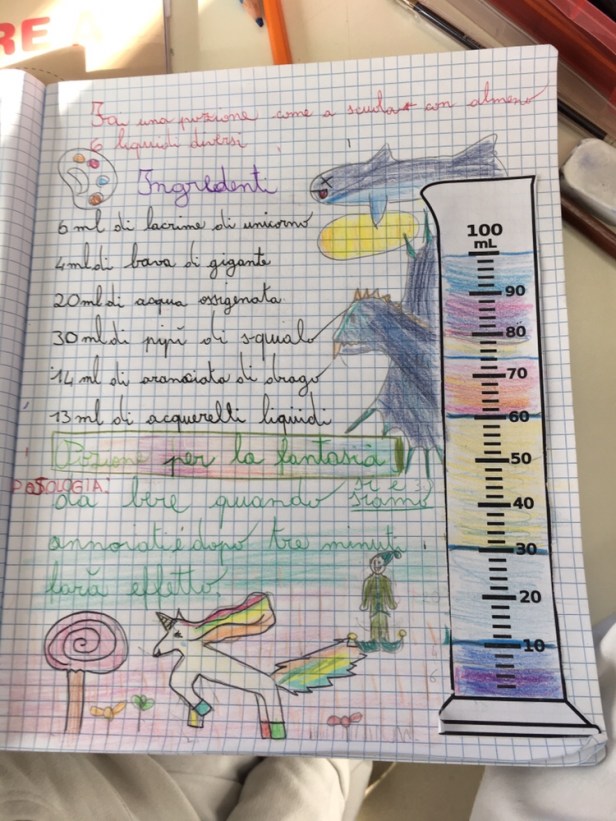 RE A
Fa una pozione come a scuola con almeno
6 liquidi diversi
Ingredienti
6 ml di lacrime di unicorno
4 ml di bava di gigante
20 ml di acqua ossigenata
30 ml di pipì di squalo
14 ml di aranciata di drago
13 ml di acquerelli liquidi
Pozione per la fantasia
POSOLOGIA:
da bere quando si è
annoiati e dopo tre minuti
farà effetto.
100
mL
90
80
70
60
50
40
30
20
10